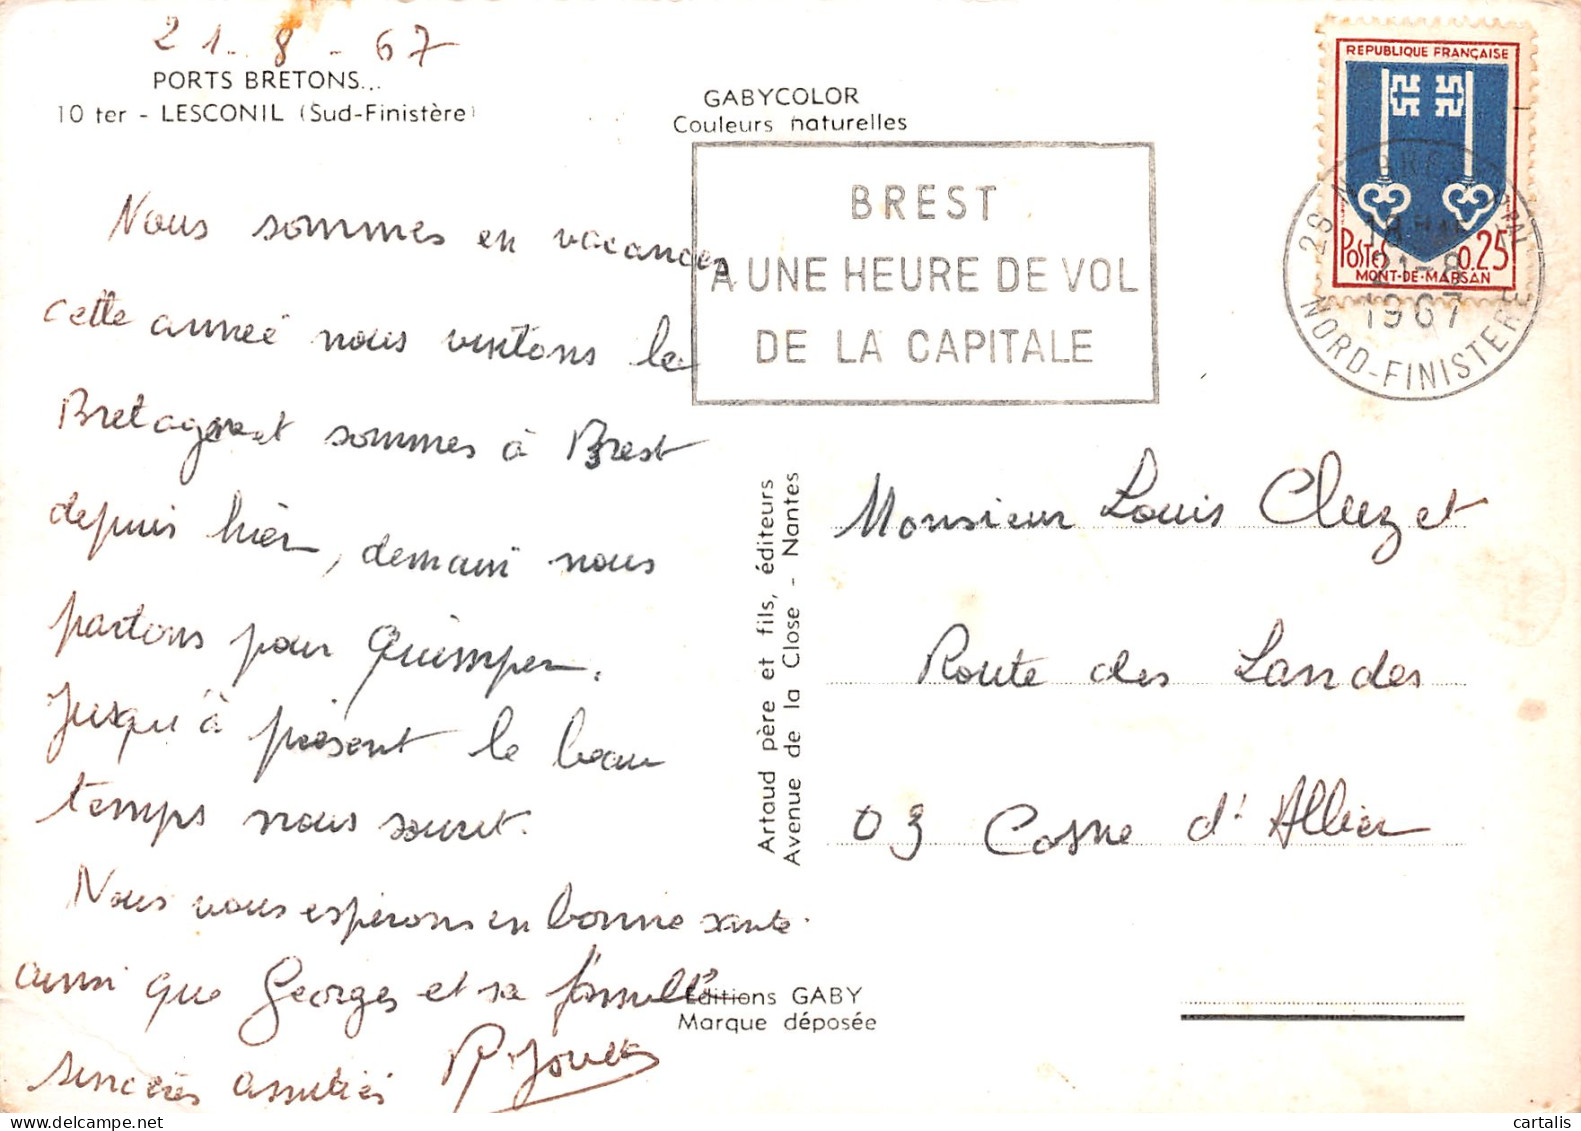 21-8-67
PORTS BRETONS...
10 ter - LESCONIL (Sud-Finistère)
Nous sommes en vacances
cette année nous visitons la
Bretagne et sommes à Brest
depuis hier, demain nous
partons pour Quimper.
Jusqu'à présent le beau
temps nous sourit.
Nous vous espérons en bonne santé
ainsi que Georges et sa famille
sincères amitiés
GABYCOLOR
Couleurs naturelles
BREST
A UNE HEURE DE VOL
DE LA CAPITALE
REPUBLIQUE FRANÇAISE
Postes 0.25
MONT-DE-MARSAN
21-8
1967
NORD-FINISTERE
Artaud père et fils, éditeurs
Avenue de la Close - Nantes
Monsieur Louis Cluzet
Route des Landes
03 Cosne d'Allier
Editions GABY
Marque déposée
cartalis